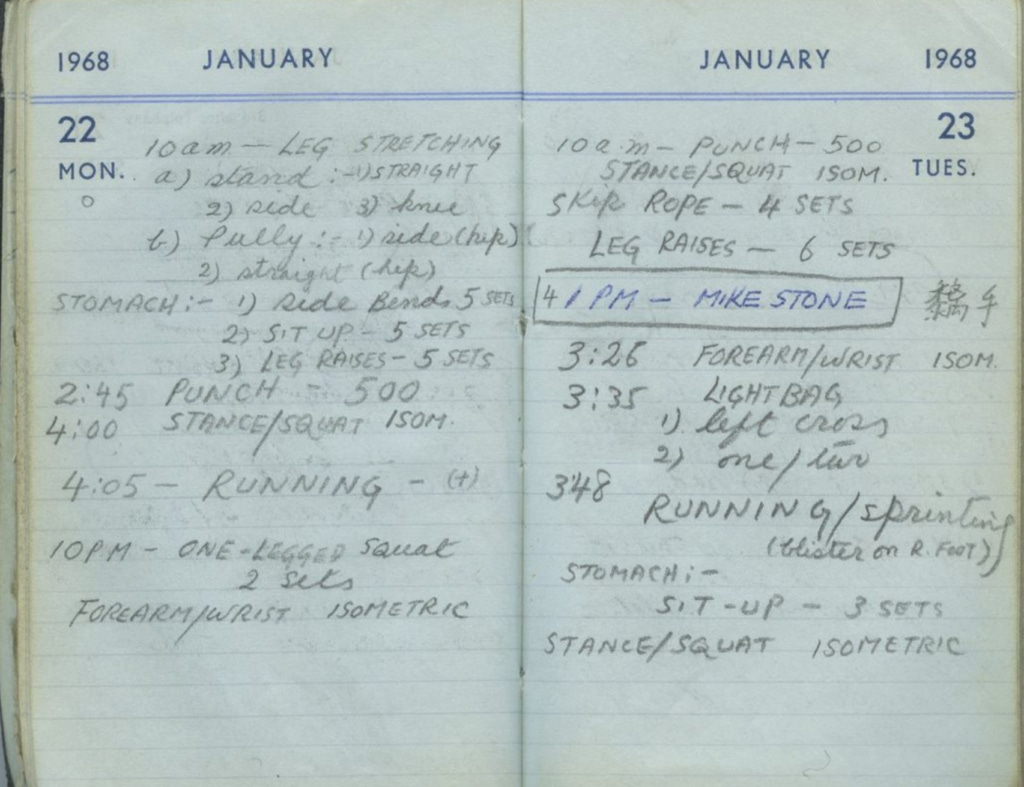 1968 JANUARY
22
MON.
10 a.m. — LEG STRETCHING
a) stand :- 1) STRAIGHT
2) side 3) knee
b) Pully :- 1) side (hip)
2) straight (hip)
STOMACH :- 1) Side Bends 5 SETS
2) SIT UP — 5 SETS
3) LEG RAISES — 5 SETS
2:45 PUNCH — 500
4:00 STANCE/SQUAT ISOM.
4:05 — RUNNING — (+)
10 PM — ONE-LEGGED Squat
2 sets
FOREARM/WRIST ISOMETRIC
JANUARY 1968
23
TUES.
10 a.m — PUNCH — 500
STANCE/SQUAT ISOM.
SKIP ROPE — 4 SETS
LEG RAISES — 6 SETS
4 1 PM — MIKE STONE 黐手
3:26 FOREARM/WRIST ISOM.
3:35 LIGHT BAG
1) left cross
2) one/two
348
RUNNING/sprinting
(blister on R. FOOT)
STOMACH :-
SIT-UP — 3 SETS
STANCE/SQUAT ISOMETRIC